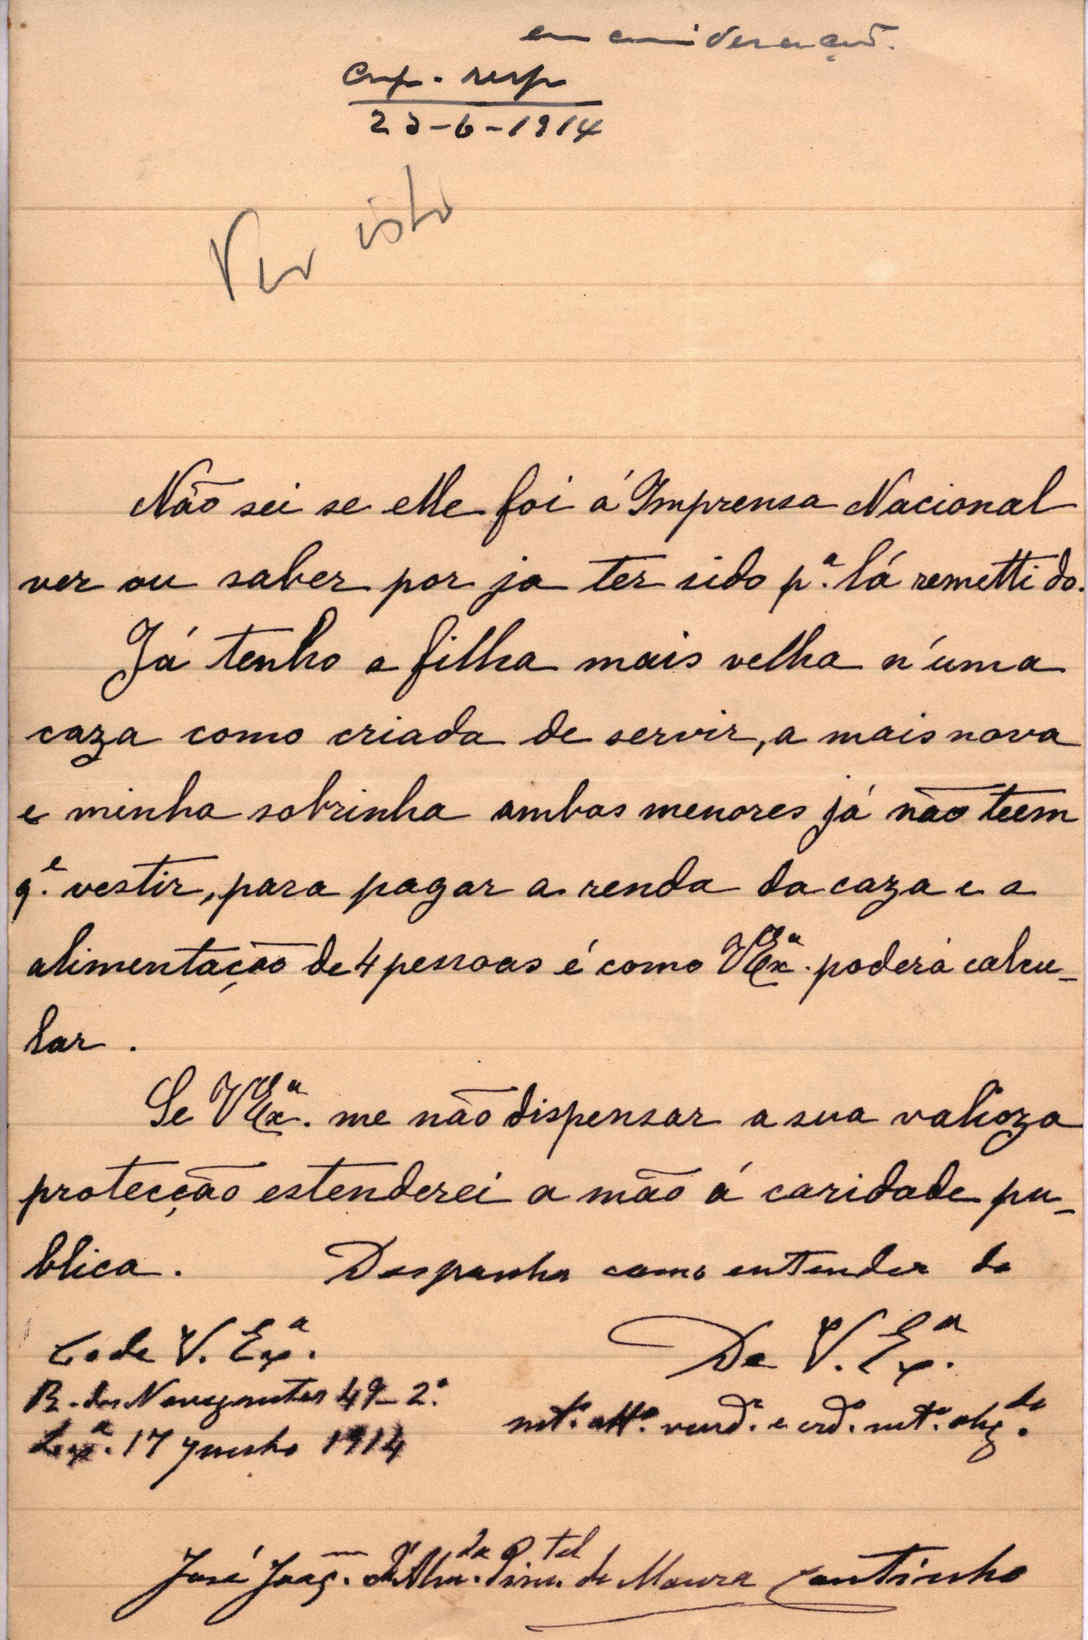 em consideração.
resp
23-6-1914
Ver isto
Não sei se elle foi á Imprensa Nacional
ver ou saber por ja ter sido p.ª lá remettido.
Já tenho a filha mais velha n'uma
caza como criada de servir, a mais nova
e minha sobrinha ambas menores já não teem
q.e vestir, para pagar a renda da caza e a
alimentação de 4 pessoas é como V Ex.ª poderá calcu-
lar.
Se V Ex.ª me não dispensar a sua valioza
protecção estenderei a mão á caridade pu-
blica. Desponha como entender do
C. de V. Ex.ª
De V. Ex.ª
R. dos Navegantes 49-2.º
mt.º att.º venr.º e crd.º mt.º obg.do
Lx.ª 17 junho 1914
José Joaq. d'Alm.da Pim.tel de Moura Coutinho